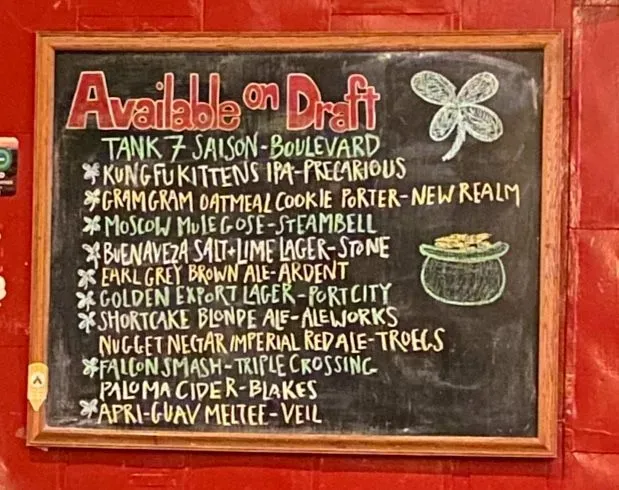 Available on Draft
TANK 7 SAISON-BOULEVARD
KUNG FU KITTENS IPA-PRECARIOUS
GRAMGRAM OATMEAL COOKIE PORTER-NEW REALM
MOSCOW MULE GOSE-STEAMBELL
BUENAVEZA SALT+LIME LAGER-STONE
EARL GREY BROWN ALE-ARDENT
GOLDEN EXPORT LAGER-PORT CITY
SHORTCAKE BLONDE ALE-ALEWORKS
NUGGET NECTAR IMPERIAL RED ALE-TROEGS
FALCON SMASH-TRIPLE CROSSING
PALOMA CIDER-BLAKES
APRI-GUAV MELTEE-VEIL